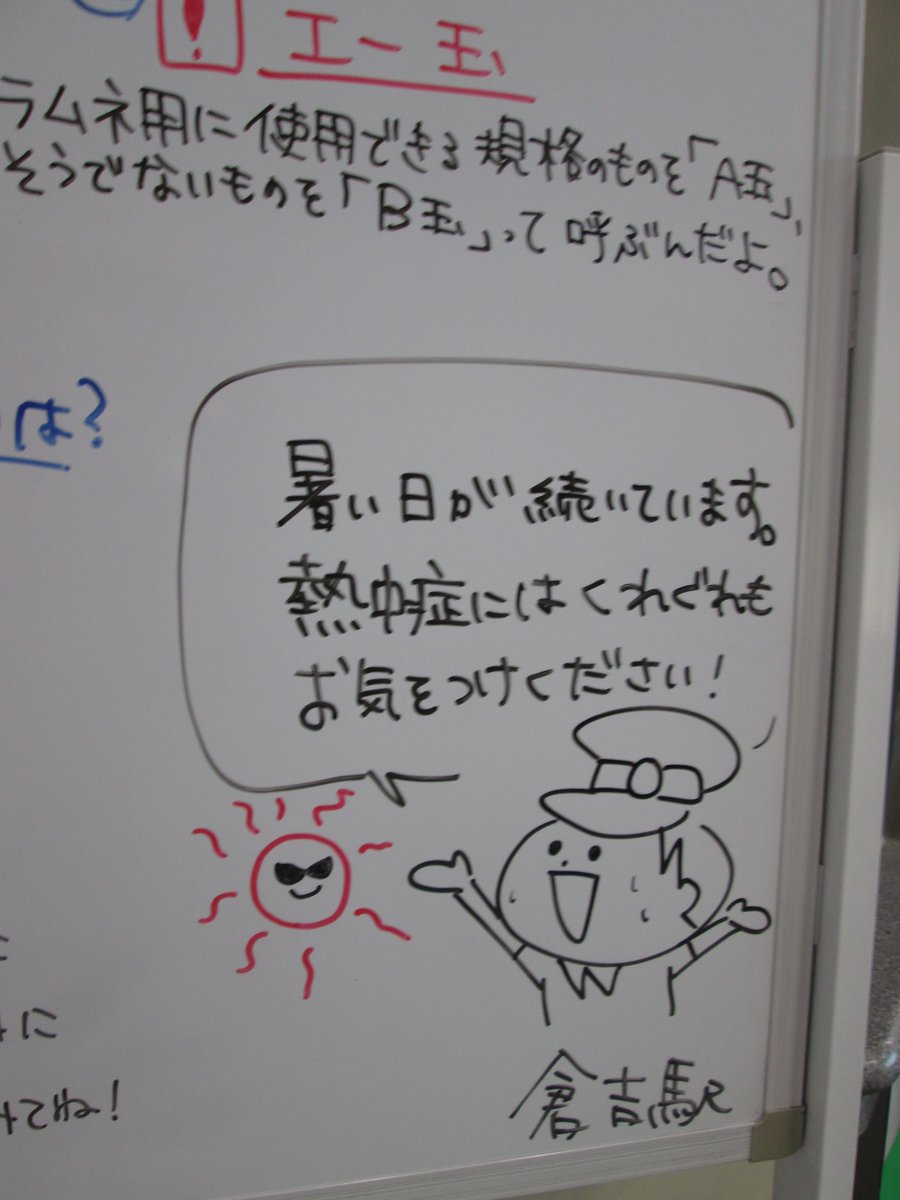 ! エー玉
ラムネ用に使用できる規格のものを「A玉」、
そうでないものを「B玉」って呼ぶんだよ。
は?
暑い日が続いています。
熱中症にはくれぐれも
お気をつけください!
に
てね!
倉吉駅